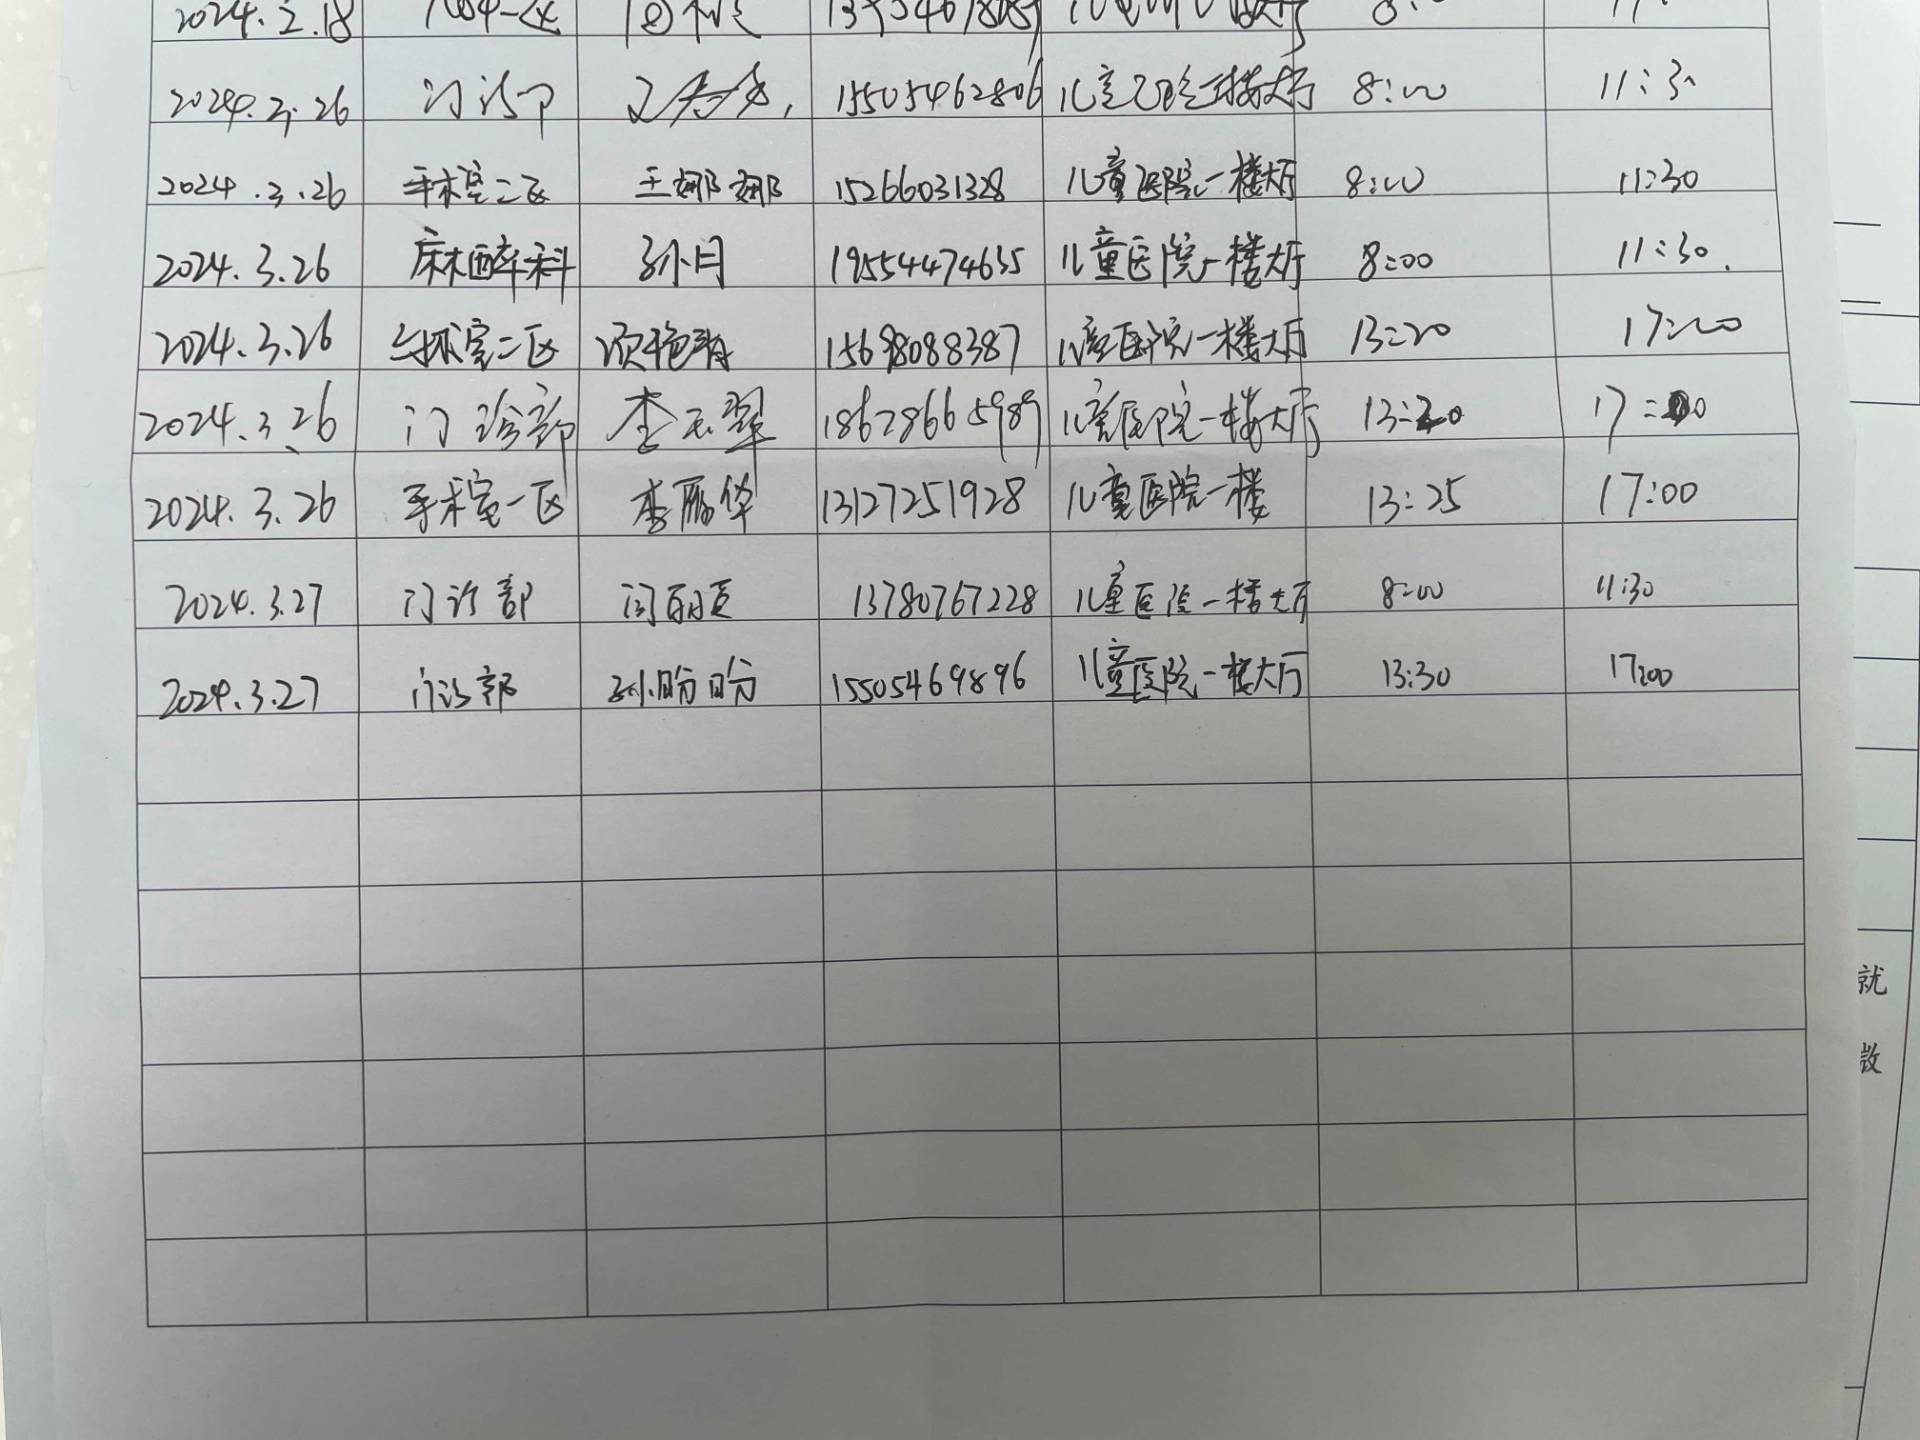 2024.2.18
2024.3.26 门诊部 15505462806 儿童医院一楼大厅 8:00 11:30
2024.3.26 手术室二区 王娜娜 15266031328 儿童医院一楼大厅 8:00 11:30
2024.3.26 麻醉科 孙月 19554474635 儿童医院一楼大厅 8:00 11:30.
2024.3.26 手术室二区 项艳青 15698088387 儿童医院一楼大厅 13:20 17:00
2024.3.26 门诊部 李玉翠 18678665989 儿童医院一楼大厅 13:20 17:00
2024.3.26 手术室一区 李雁华 13127251928 儿童医院一楼 13:25 17:00
2024.3.27 门诊部 闫丽夏 13780767228 儿童医院一楼大厅 8:00 11:30
2024.3.27 门诊部 孙盼盼 15505469896 儿童医院一楼大厅 13:30 17:00
就